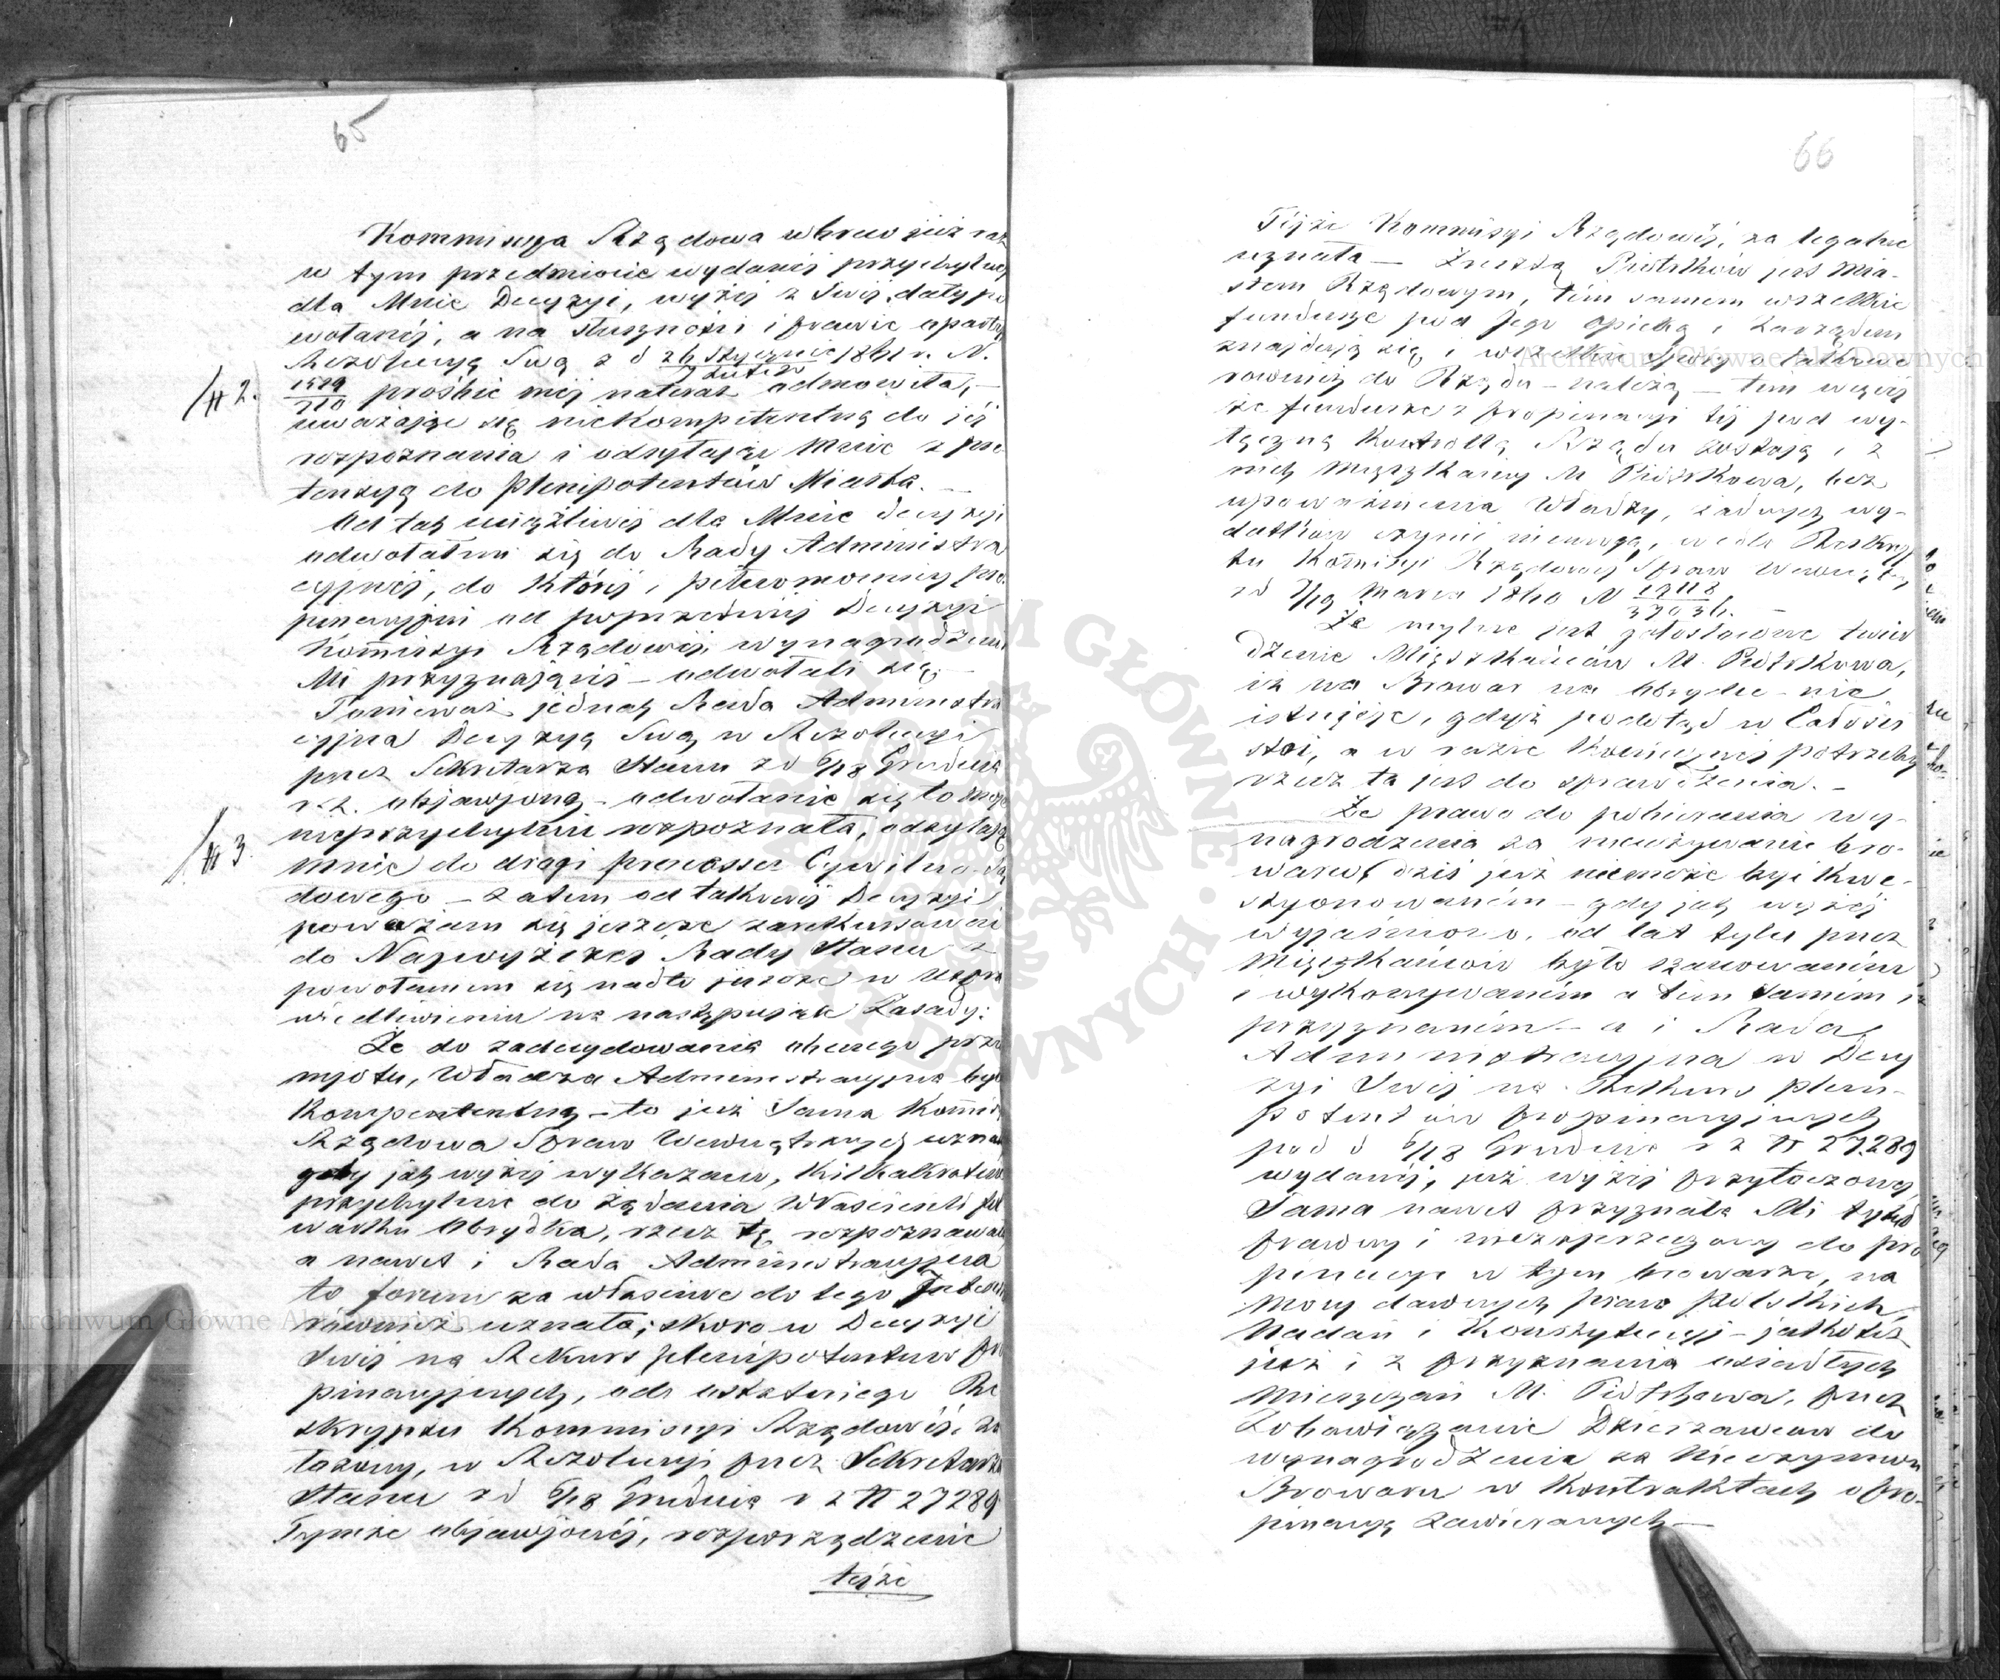 65
Kommissya Rządowa wbrew już raz
w tym przedmiocie wydanéj przychylnej
dla Mnie Decyzyi, wyżéj z Swéj daty po
wołanéj, a na słuszności i prawie oparty
Rezolucyą Swą z d 26 Stycznia 1861 r. N.
7 Lutego
/# 2. 1529/210 prośbie méj nateraz odmówiła,
uważając się niekompetentną do jéj
rozpoznania i odsyłając mnie z pre
tensyą do Plenipotentów Miasta. —
Od tak uciążliwéj dla Mnie decyzyi
odwołałem się do Rady Administra
cyjnéj, do któréj i pełnomocnicy pro
pinacyjni od poprzedniéj Decyzyi
Kommissyi Rządowéj, wynagrodzenie
Mi przyznającéj — odwołali się. —
Ponieważ jednak Rada Administra
cyjna Decyzyą Swą w Rezolucyi
przez Sekretarza Stanu z d 6/18 Grudnia
r. z. objawioną — odwołanie się to moje
/# 3. nieprzychylnie rozpoznała, odsyłając
mnie do drogi processu Cywilno-Są
dowego — zatem od takowéj Decyzyi
poważam się jeszcze zarekursować
do Najwyższej Rady Stanu z
powołaniem się nadto jeszcze w uspra
wiedliwieniu na następujące Zasady:
Że do zadecydowania obecnego przed
miotu, Władza Administracyjna była
Kompetentną — to już Sama Kommis
Rządowa Spraw Wewnętrznych uznała
gdy jak wyżéj wykazano, kilkakrotnie
przychylnie do żądania Właścicieli fol
warku Obrydka, rzecz tę rozpoznawała
a nawet i Rada Administracyjna
to forum za właściwe do tego
również uznała; skoro w Decyzyi
Swéj na Rekurs plenipotentów pro
pinacyjnych, od ostatniego Re
skryptu Kommissyi Rządowéj, za
łożony, w Rezolucyi przez Sekretarza
Stanu z d 6/18 Grudnia r z N 27289
Tymże objawionéj, rozporządzenie
tejże
66
Téjże Kommissyi Rządowéj, za legalne
uznała — Zresztą Piotrków jest Mia-
stem Rządowym, tém samem wszelkie
fundusze pod Jego opieką i Zarządem
znajdują się, i wszelkie spory o takowe
również do Rządu — należą — tem więcej
że fundusze z propinacyi téj pod wy-
łączną Kontrollą Rządu zostają i z
nich Mieszkańcy M Piotrkowa, bez
upoważnienia Władzy, żadnych wy-
datków czynić niemogą, wedle Reskryp
tu Kommissyi Rządowéj Spraw Wewnętrz
z d 7/19 Marca 1860 N 19118/37936. —
Że mylne jest gołosłowne twier
dzenie Mieszkańców M. Piotrkowa,
iż na Browar na Obrydce — nie
istnieje, gdyż podotąd w Całości
stoi, a w razie Koniecznéj potrzeby
rzecz ta jest do sprawdzenia. —
Że prawo do pobierania wy-
nagrodzenia za nieużywanie bro-
waru, dziś już niemoże być kwe-
styonowaném — gdy jak wyżéj
wyjaśniono, od lat tylu przez
Mieszkańców było szanowaném
i wykonywaném a tém samém i
przyznaném — a i Rada
Administracyjna w Decy
zyi Swéj na Rekurs pleni-
potentów propinacyjnych
pod d 6/18 Grudnia r z N 27.289
wydanéj, już wyżéj przytoczonej
Sama nawet przyznała Mi tytuł
prawny i niezaprzeczony do pro
pinacyi w tym browarze, na
Mocy dawnych praw Polskich,
Nadań i Konstytucyj — jakoteż
już i z przyznania osiadłych
Mieszczan M. Piotrkowa, przez
Zobowiązanie Dzierżawców do
wynagrodzenia za Nieczynność
Browaru w Kontraktach o pro-
pinacyą Zawieranych —
Archiwum Główne Akt Dawnych
Archiwum Główne Akt Dawnych
ARCHIWUM GŁÓWNE AKT DAWNYCH